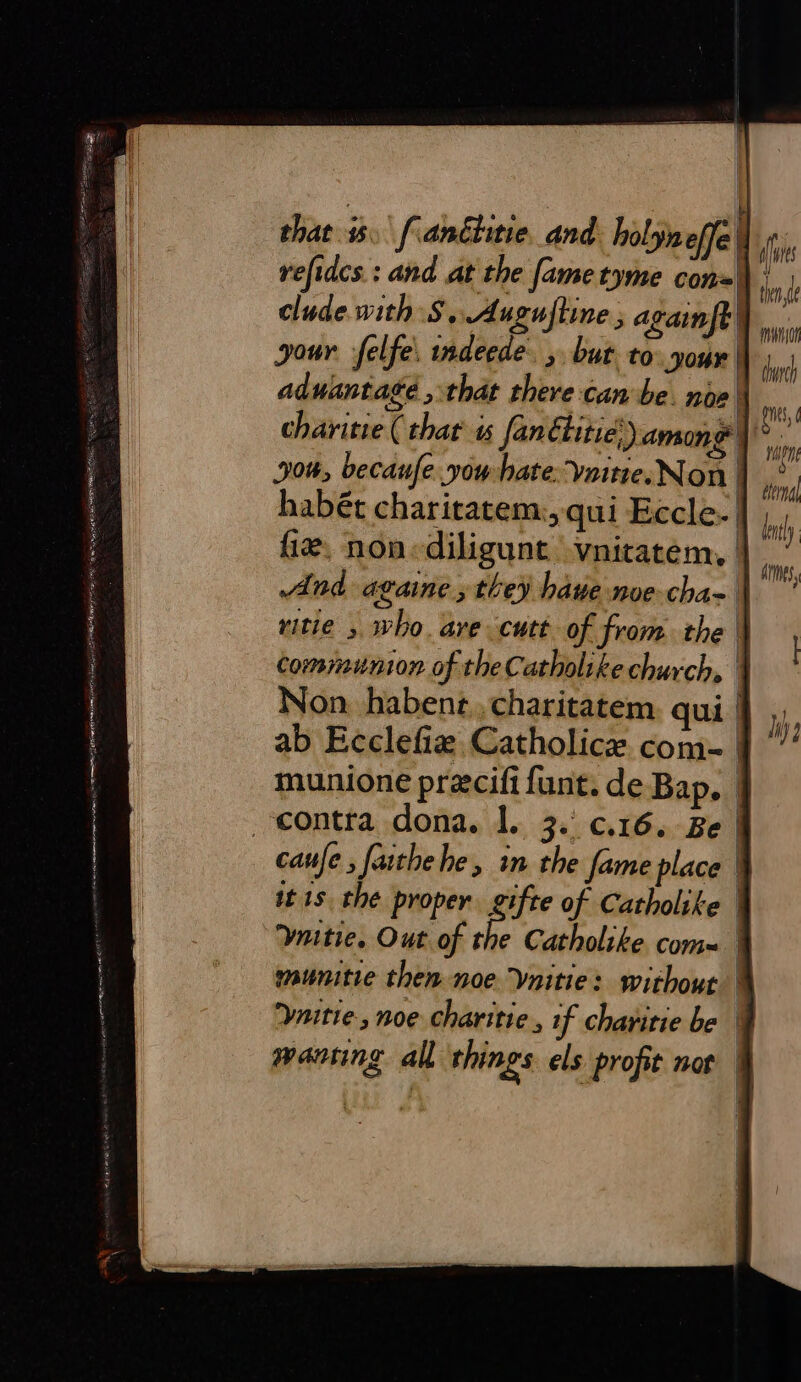 that is ſanctitie and holyneſſe
reſides : and at the ſame tyme con-
clude with S. Auguſtine, againſt
your ſelfe indeede , but to your
aduantage , that there can be noe
charitie ( that is ſanctitie ) among
you, becauſe you hate vnitie. Non
habét charitatem, qui Eccle-
ſiæ non diligunt vnitatem.
And againe , they haue noe cha-
ritie , who are cutt of from the
communion of the Catholike church,
Non habent charitatem qui
ab Eccleſiæ Catholicæ com-
munione præciſi ſunt. de Bap.
contra dona. l. 3. c.16. Be
cauſe , ſaithe he, in the ſame place
it is the proper gifte of Catholike
vnitie. Out of the Catholike com-
munitie then noe vnitie: without
vnitie, noe charitie, if charitie be
wanting all things els profit not